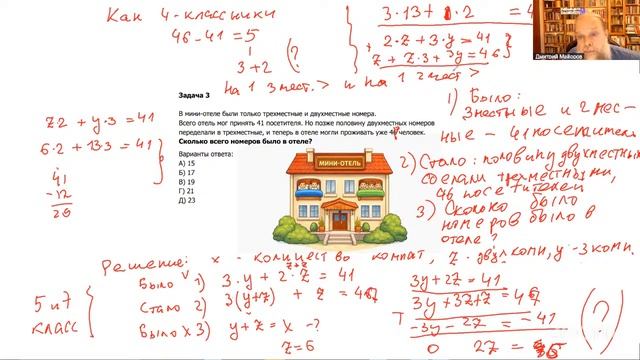 Как 4-классники
46-41=5
3+2
(?
на 1 3мест. > и на 1 2мест >
3·13+1·2 = 4
2·z+3·y=41
z+z·3+3y=46
Дмитрий Майоров
Задача 3
В мини-отеле были только трехместные и двухместные номера.
Всего отель мог принять 41 посетителя. Но позже половину двухместных номеров
переделали в трехместные, и теперь в отеле могли проживать уже 4 человек.
Сколько всего номеров было в отеле?
Варианты ответа:
А) 15
Б) 17
В) 19
Г) 21
Д) 23
МИНИ-ОТЕЛЬ
z2 + y·3 = 41
6·2 + 13·3 = 41
41
-12
29
1) Было:
3местные и 2мес-
ные - 41 посетитель
2) Стало: половину двухместных
сделали трехместными,
46 посетителей
3) Сколько было
номеров было в
отеле?
Решение: x - количество комнат, z - двухкомн, y - 3комн.
5 и 7
класс
Было 1) 3·y + 2·z = 41
z+z
Стало 2) 3(y+z) + z = 46
Было x 3) y+z = x -?
z=6
3y+2z=41
3y+3z+z=4
-3y-2z=-41
0 2z =
(?)